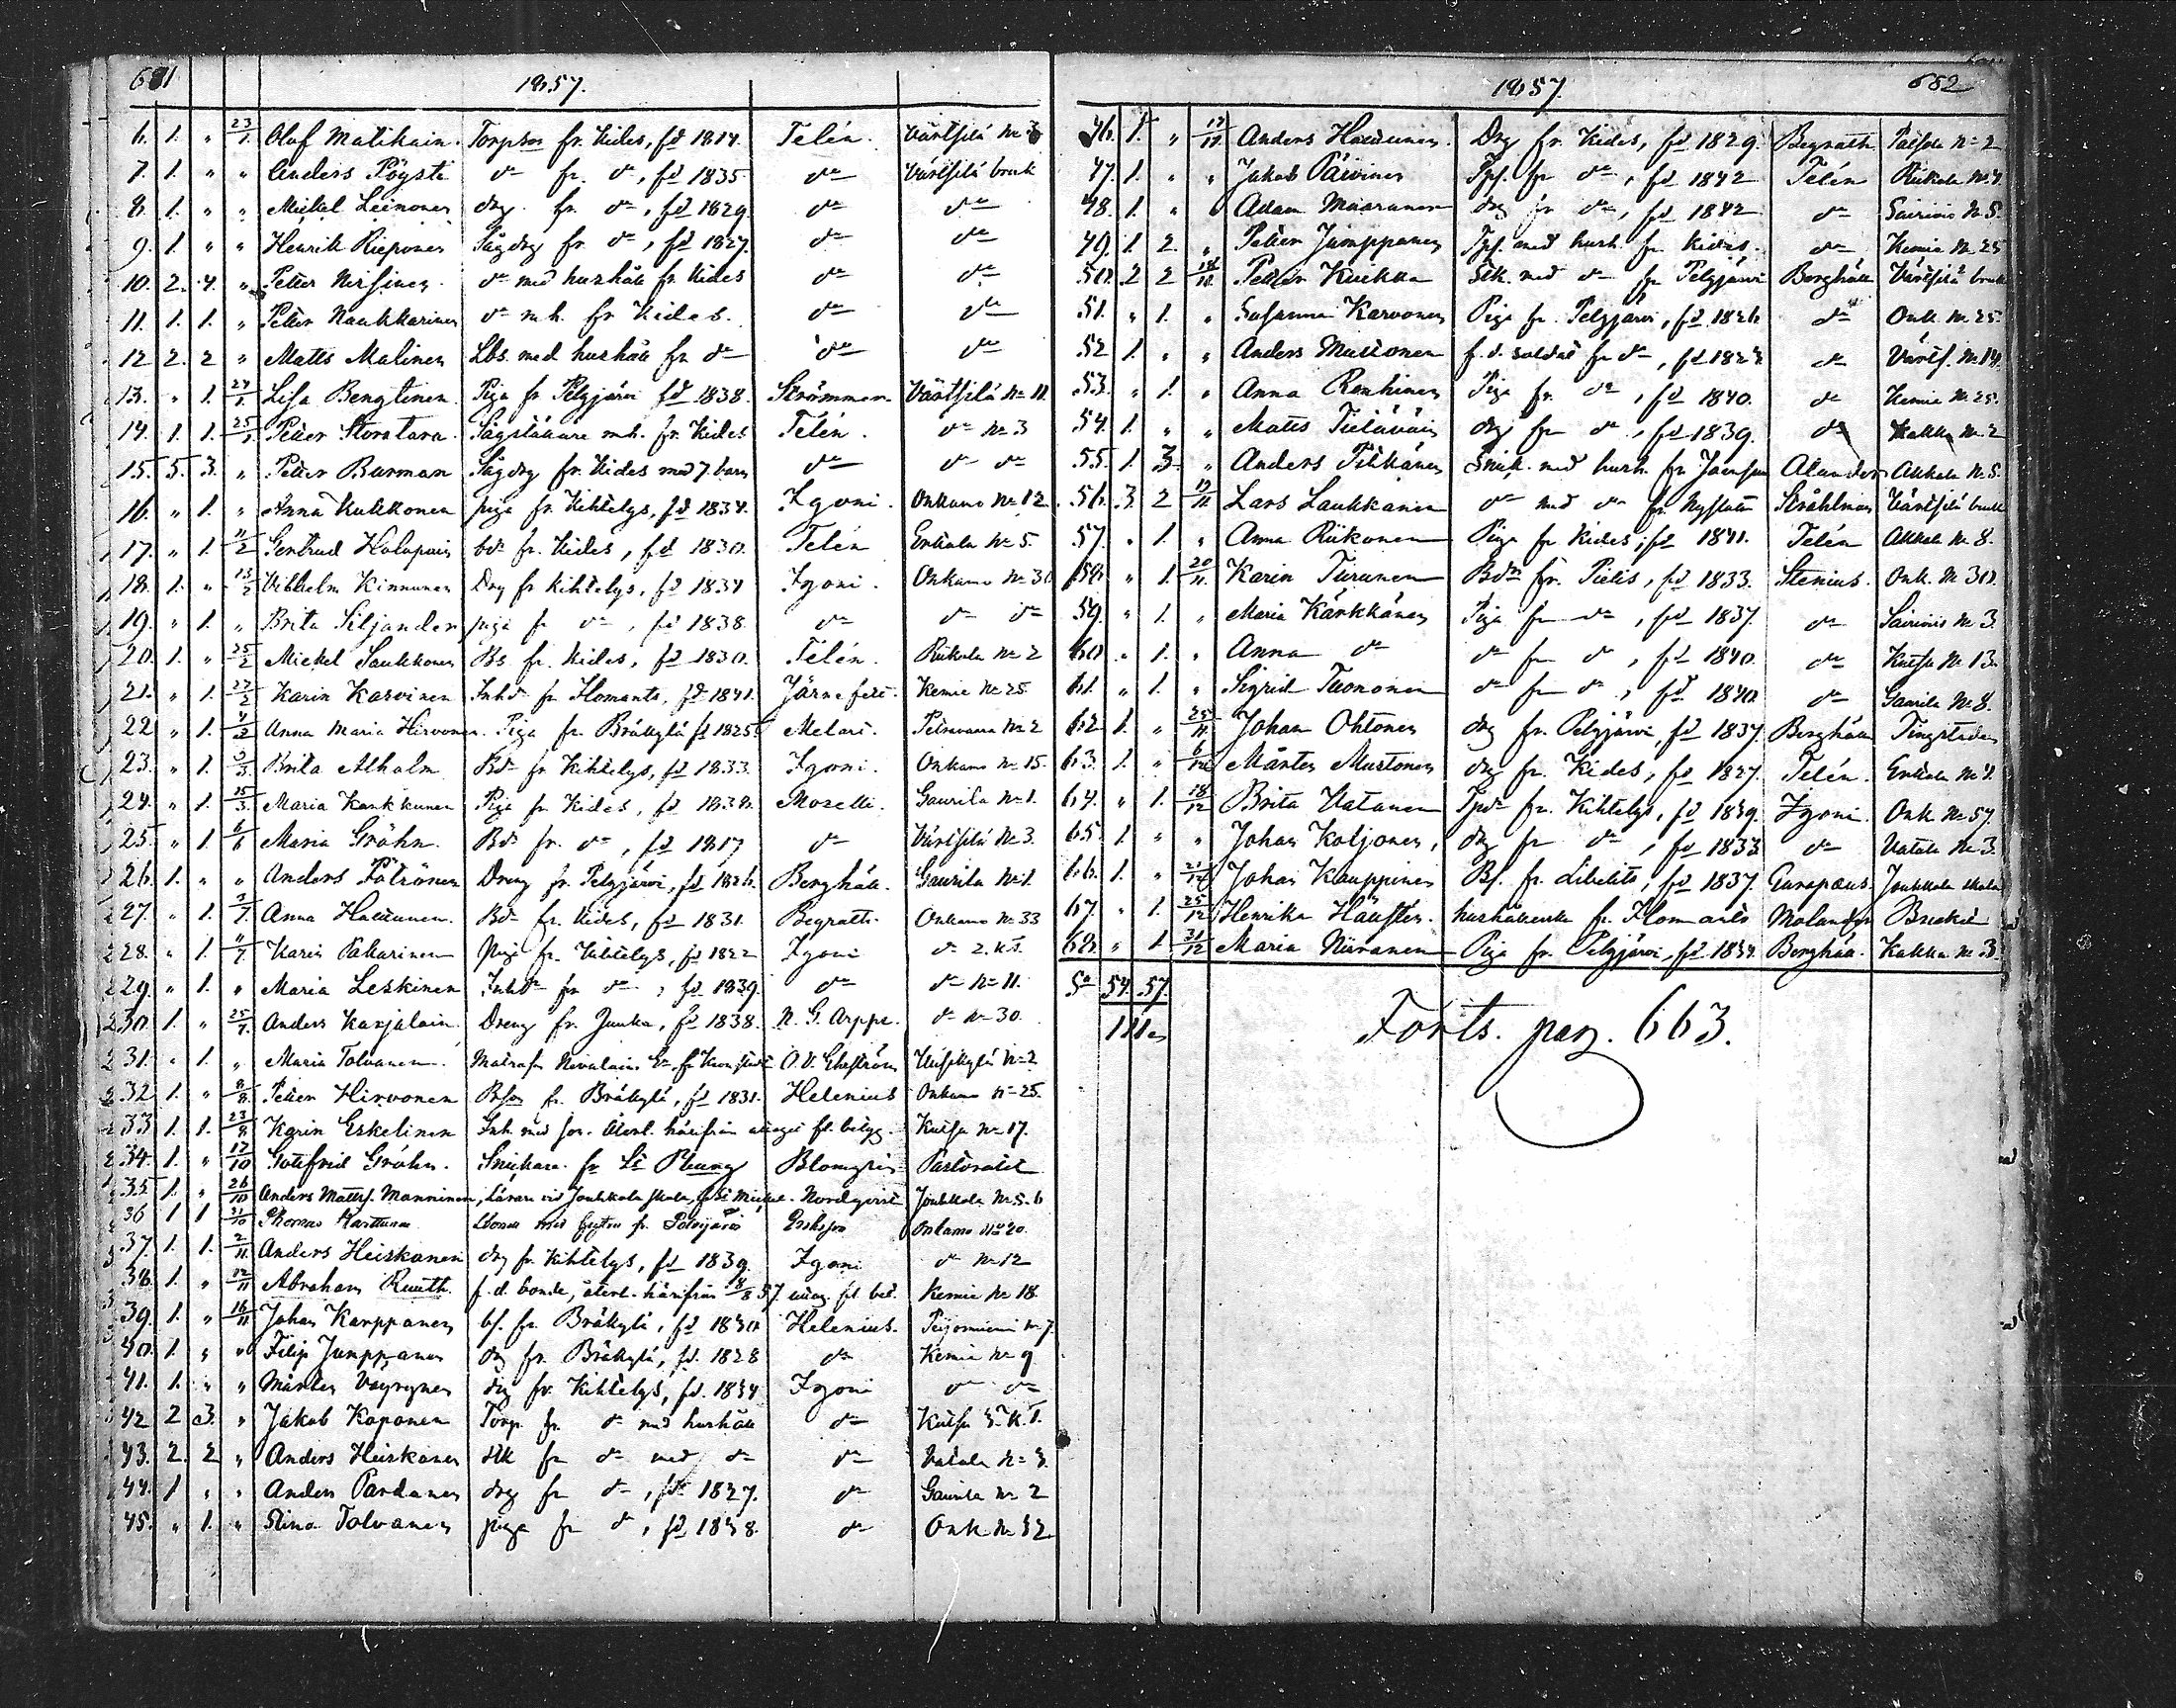 681 1857.
6. 1. " 23/1. Olof Matikain. Torpson fr. Kides, fd 1814. Telén. Värtsilä No
7. 1. " " Anders Pöysti do fr. do, fd 1835 do Värtsilä bruk
8. 1. " " Mickel Leinonen drg. fr. do, fd 1829. do do
9. 1 " " Henrik Rieponen Sågdrg fr. do, fd 1827. do do
10. 2. 4. " Petter Nirsinen do med hushåll fr. Kides do do
11. 1. 1. " Petter Naukkarinen do m.h. fr Kides. do do
12 2. 2 " Matts Malinen Lbs. med hushåll fr do do do
13. " 1. 24/1. Lisa Bengtinen Piga fr Pelgjärvi fd 1838. Strömman Värtsilä No 11.
14. 1. 1. 25/1. Petter Storstara. Sågställare m.h. fr. Kides Telén. do No 3
15. 5. 3. " Petter Burman Sågdrg fr. Kides med 7 barn do do do
16. " 1. " Anna Kukkonen piga fr. Kihtelys, fd 1834. Zgoni. Onkamo No 12
17. " 1. 11/2 Gertrud Holopain bdr fr. Kides, fd 1830. Telén Enkala No 5.
18. 1. " 13/2 Vilhelm Kinnunen Drg fr Kihtelys, fd 1834 Zgoni. Onkamo No 30
19. " 1. " Brita Siljander piga fr do, fd 1838. do do do
20. 1. " 25/2 Mickel Saukkonen Bs. fr. Kides, fd 1830. Telén. Riikola No 2
21. " 1. 27/2 Karin Karvinen Inhdr fr Ilomants, fd 1841. Järnefelt. Kemie No 25.
22 " 1. 4/2 Anna Maria Hirvonen. Piga fr. Bräkylä fd 1825. Melart. Petravaara No 2
23. " 1. 3/3. Brita Alholm Bdr fr Kihtelys, fd 1833. Zgoni. Onkamo No 15.
24. " 1. 15/3. Maria Kankkunen Piga fr Kides, fd 1838. Mozelli. Gaurila No 1.
25. " 1. 6/6 Maria Gröhn. Bdr fr. do, fd 1817 do Värtsilä No 3.
26. 1. " " Anders Pötrönen Dreng fr. Pelgjärvi, fd 1826. Berghäll. Gaurila No 1.
27. " 1. 3/7. Anna Hacunen. Bdr fr. Kides, fd 1831. Begrath. Onkamo No 33
28. " 1. 11/7. Karin Pakarinen Piga fr. Kihtelys, fd 1822 Zgoni do 2. K.T.
29. " 1. " Maria Leskinen Inhdr fr do, fd 1839. do do No 11.
30. 1. " 25/7. Anders Karjalain. Dreng fr. Juuka, fd 1838. N. G. Arppe. do No 30.
31. " 1. " Maria Tolvanen. Matrosn Nevalain. Ea. fr Kronstadt O. V. Ekström Uusikylä No 2
32. 1. " 8/8. Petter Hirvonen Bson fr. Bräkylä, fd 1831. Helenius Onkamo No 25.
33 1. 1. 23/8 Karin Eskelinen Inh. med son. Återl. härifrån fl. betyg. Kutsu No 17.
34. 1. " 17/10 Gottfrid Gröhn. Snickare fr St. Pburg Blomqvist Pastoratet
35 1. " 26/10 Anders Mattss. Manninen, Lärare vid Joukkola skola, fr St Michel. Nordqvist Joukkola No 5. 6
36 1 1 31/10 Thomas Karttunen Bonde med hustru fr. Polvijärvi Eriksson Onkamo No 20.
37. 1. 1. 2/11. Anders Heiskanen drg fr Kihtelys, fd 1839. Zgoni do No 12
38. 1. " 12/11 Abraham Ruuth. f.d. bonde, återl. härifrån 8/8 57 fl. bet. Kemie No 18.
39. 1. " 16/11 Johan Karppanen bs. fr Bräkylä, fd 1840. Helenius. Peijonniemi No 7.
40. 1. " " Filip Jumppanen drg fr. Bräkylä, fd. 1828 do Kemie No 9
41. 1. " " Mårten Väyrynen drg fr. Kihtelys, fd. 1834 Zgoni do do
42 2 3. " Jakob Koponen Torp. fr. do med hushåll do Kutsu 3. K. T.
43. 2. 2 " Anders Heiskanen stk fr do med do do Vatala No 3.
44. 1 " " Anders Pardanen drg fr do, fd 1827. do Gaurila No 2
45. " 1. " Stina Tolvanen piga fr do, fd 1838. do Onk No 32
1857. 682
46. 1. " 17/11. Anders Hacunen. Drg fr. Kides, fd 1829. Begrath Patsola No 2
47. 1. " " Jakob Päivinen Tps. fr do, fd 1842 Telén Riikola No 4.
48. 1. " " Adam Maaranen drg fr do, fd 1842 do Sairivie No 5.
49. 1 2 " Petter Jumppanen Tps. med hush. fr. Kides. do Kemie No 25
50. 2 2 18/11. Petter Kuikka Stk. med do fr Pelgjärvi Berghäll Värtsilä bruk
51. " 1. " Susanna Karvonen Piga fr. Pelgjärvi, fd 1826 do Onk No 25.
52 1. " " Anders Mustonen f.d. soldat fr do, fd 1823 do Värts. No 14.
53. " 1. " Anna Ronkinen Piga fr. do, fd 1840. do Kemie No 25.
54. 1. " " Matts Tietäväin drg fr do, fd 1839. do Kakko No 2
55. 1. 3. " Anders Pitkänen Snick. med hush. fr Joensuu Alander Akkala No 5.
56. 3. 2 19/11. Lars Laukkanen do med do fr. Nyslott Stråhlman Värtsilä bruk
57. " 1. " Anna Riikonen Piga fr Kides, fd 1841. Telén Akkala No 8.
58. " 1. 20/11. Karin Turunen Bdr fr. Pielis, fd 1833. Stenius. Onk. No 30.
59. " 1. " Maria Kärkkänen Piga fr do, fd 1837. do Sairivie No 3.
60 " 1. " Anna do do fr do, fd 1840. do Kutsu No 13.
61. " 1. " Sigrid Tuononen do fr do, fd 1840. do Gaurila No 8.
62 1. " 25/11. Johan Ohtonen drg fr. Pelgjärvi, fd 1837. Berghäll Tingstaden
63. 1. " 6/12 Mårten Mustonen drg fr. Kides, fd 1827. Telén. Enkala No 4.
64. " 1. 18/12 Brita Hatanen Tpdr fr. Kihtelys, fd 1839. Zgoni. Onk No 57.
65. 1. " " Johan Koljonen, drg fr do, fd 1833 do Vatala No 3.
66. 1. " 21/12 Johan Kauppinen Bs. fr. Libelits, fd 1837. Europaeus. Joukkola skola
67. " 1. 25/12 Henrika Häusten. hushållerska fr. Ilomants Molander
68. " 1 31/12 Maria Niiranen Piga fr. Pelgjärvi, fd 1834. Berghäll. Kakko No 3
Sa 54. 57.
111
Forts. pag. 663.